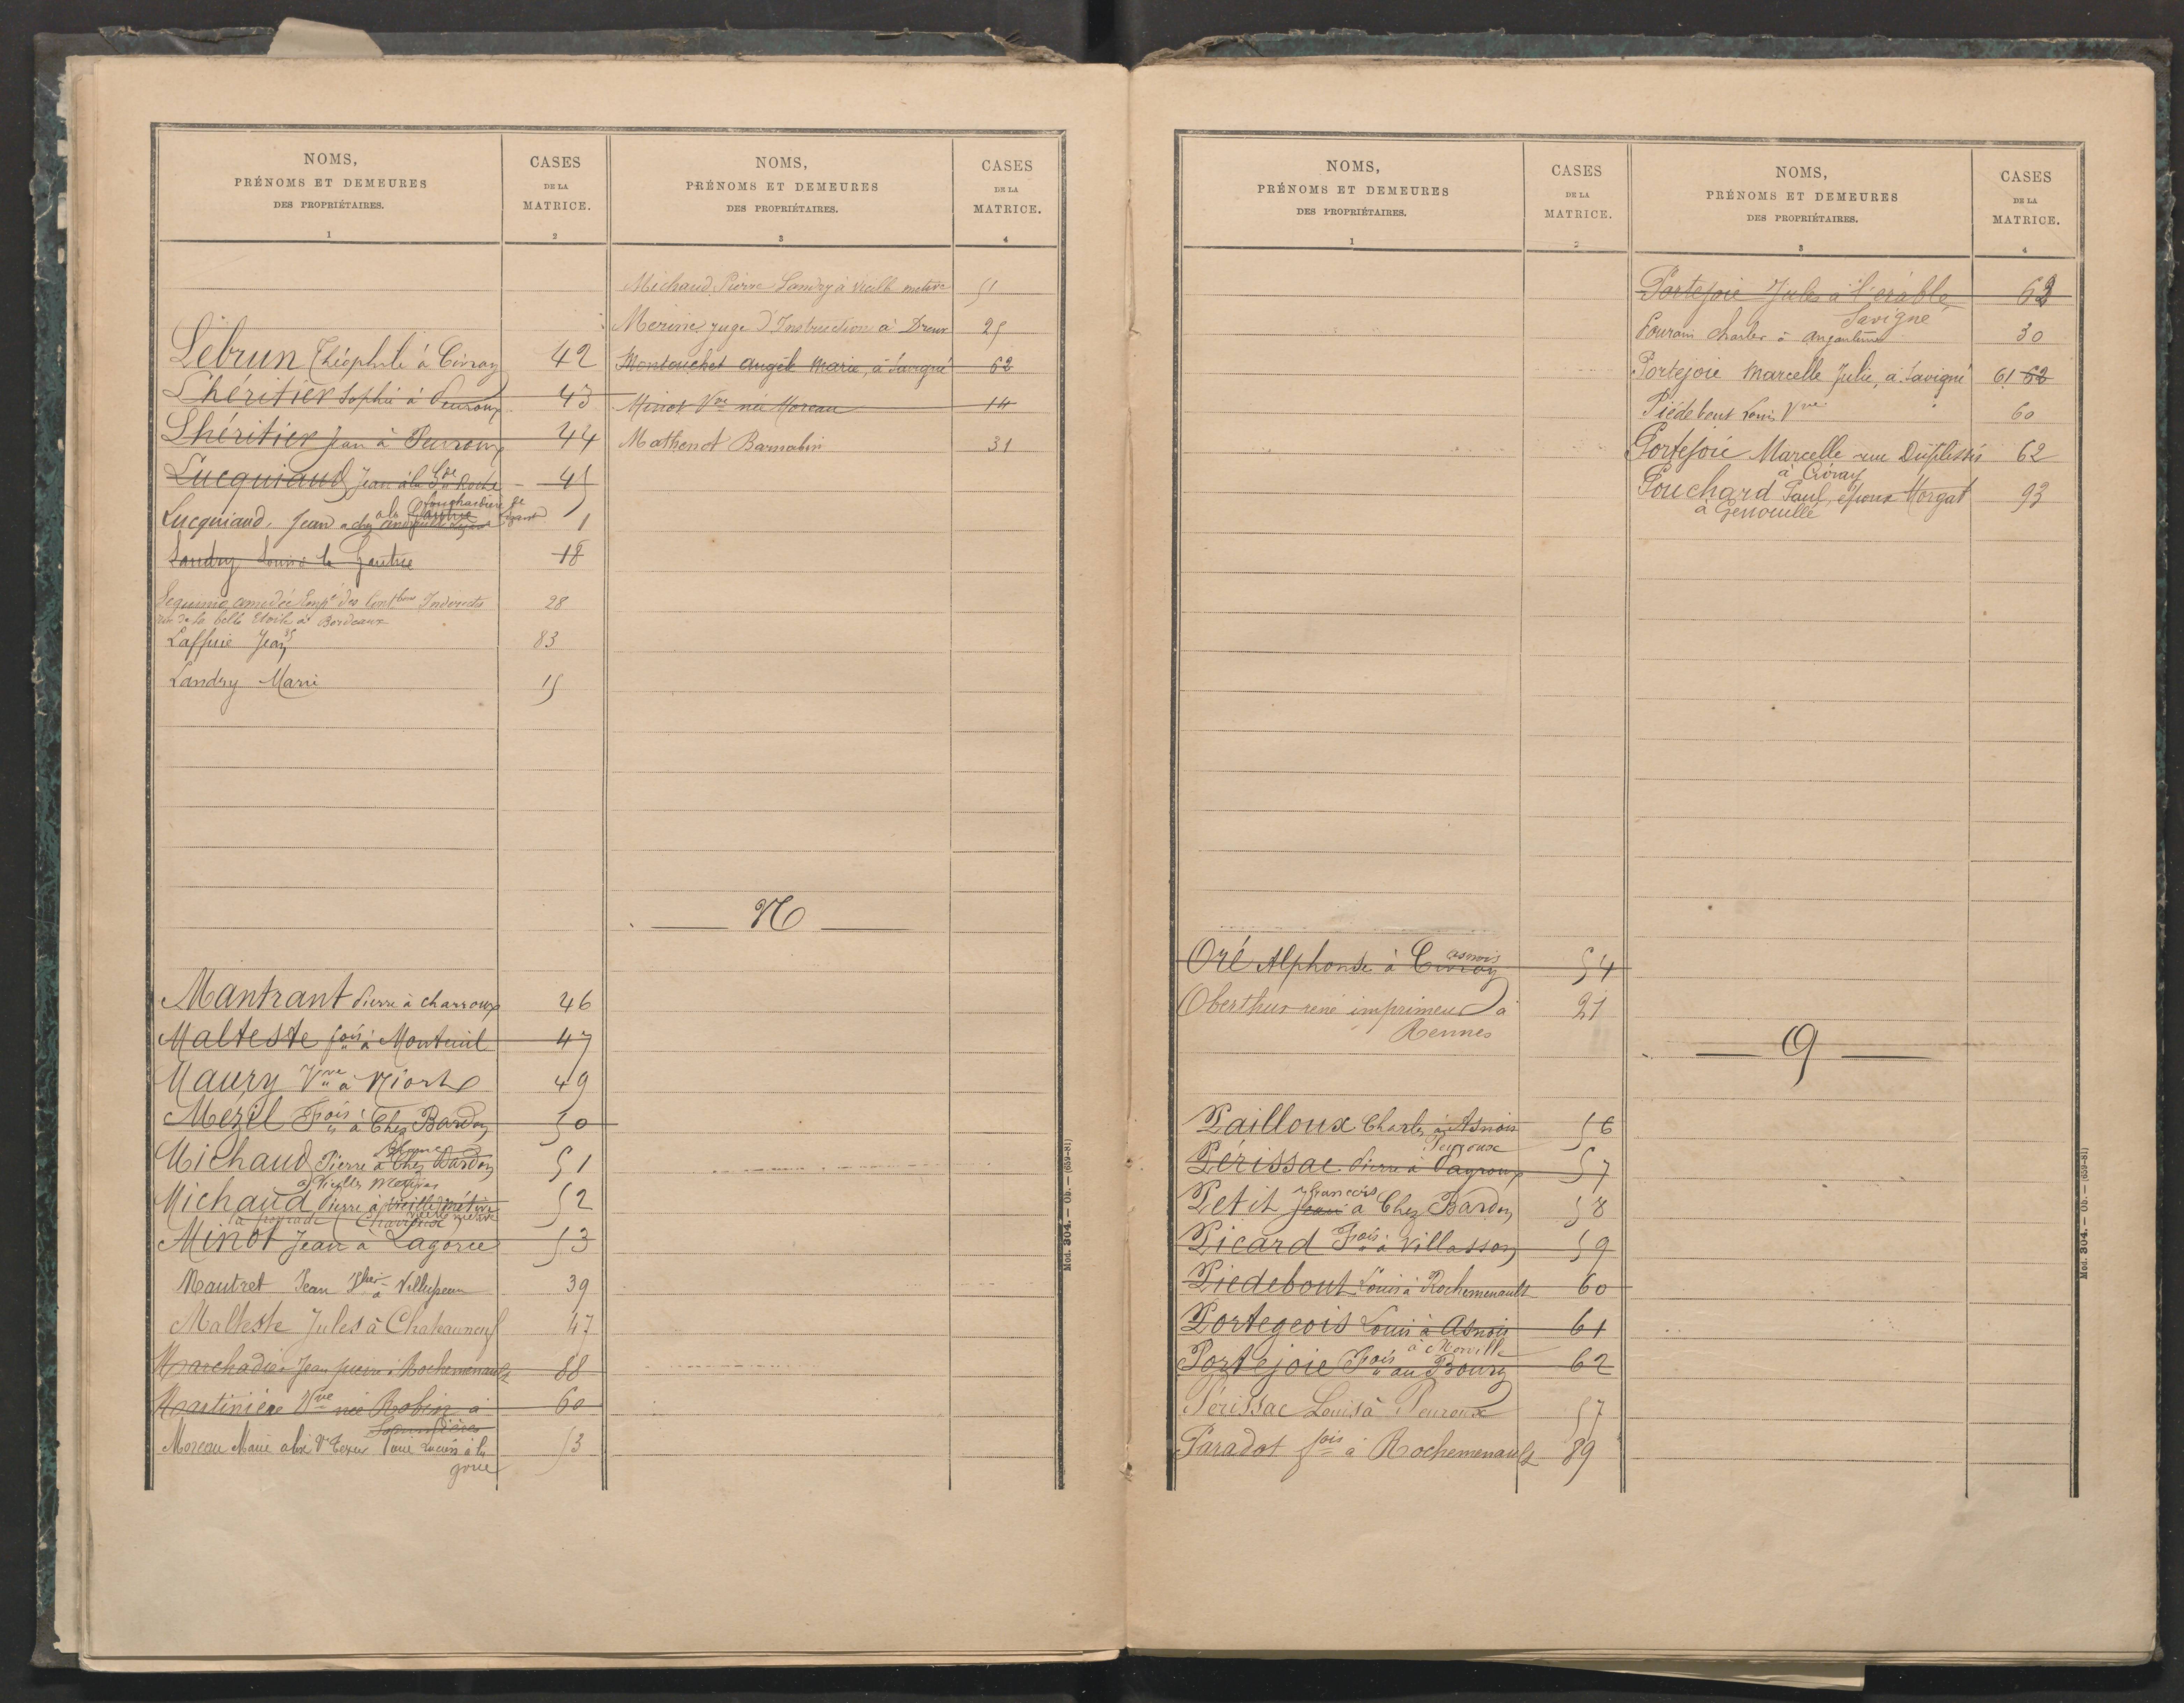 NOMS,
PRÉNOMS ET DEMEURES
DES PROPRIÉTAIRES.
1
CASES
DE LA
MATRICE.
2
Lebrun Théophile à Civray 42
Lhéritier Sophie à Peuroux 43
Lhéritier Jean à Peuroux 44
Lucquiaud Jean à la Roche 45
Lucquiaud, Jean 1
Landry Louis à la Gautrie 18
amédée Empé des Contbons Indirectes 28
rue de la belle Etoile à Bordeaux
Laffuie Jean 83
Landry Marie 15
Mantrant Pierre à Charroux 46
Malteste fois à Monteuil 47
Maury Vve à Niort 49
Mezil Fois à Chez Bardon 50
Michaud Pierre à Chez Bardon 51
à Vieilles Metives
Michaud Pierre à vieille métive 52
Minot Jean à Lagorce 53
Mautret Jean à Villepeau 39
Malteste Jules à Chateauneuf 47
Marchadier Jean pierre à Rochemenault 88
Martinière Vve née Robin à 60
Moreau Marie 53
NOMS,
PRÉNOMS ET DEMEURES
DES PROPRIÉTAIRES.
3
CASES
DE LA
MATRICE.
4
Michaud Pierre Landry à Vieille métive 51
Merine, juge d'Instruction à Dreux 25
Montouchet Angèle Marie, à Savigné 62
Minot Vve née Moreau 14
Mathenet Barnabin 31
N
Mod. 304. — Ob. — (659-81)
NOMS,
PRÉNOMS ET DEMEURES
DES PROPRIÉTAIRES.
1
CASES
DE LA
MATRICE.
2
asnois
Oré Alphonse à Civray 54
Oberthur rené imprimeur à 21
Rennes
Pailloux Charles à Asnois 56
Peyroux
Périssac Pierre à Payroux 57
françois
Petit Jean à Chez Bardon 58
Picard Fois à Villasson 59
Piedebout Louis à Rochemenault 60
Portegeois Louis à Asnois 61
Portejoie Fois au Bourg 62
Périssac Louis à Peuroux 57
Paradot fois à Rochemenault 89
NOMS,
PRÉNOMS ET DEMEURES
DES PROPRIÉTAIRES.
3
CASES
DE LA
MATRICE.
4
Portejoie Jules à l'érable 62
Savigné
Pourain Charles à 30
Portejoie Marcelle Julie, à Savigné 61 62
Piédebout Louis Vve 60
Portejoie Marcelle rue Duplessis 62
à Civray
Pouchard Paul, époux Morgat 93
à Genouillé
Q
Mod. 304. — Ob. — (659-81)